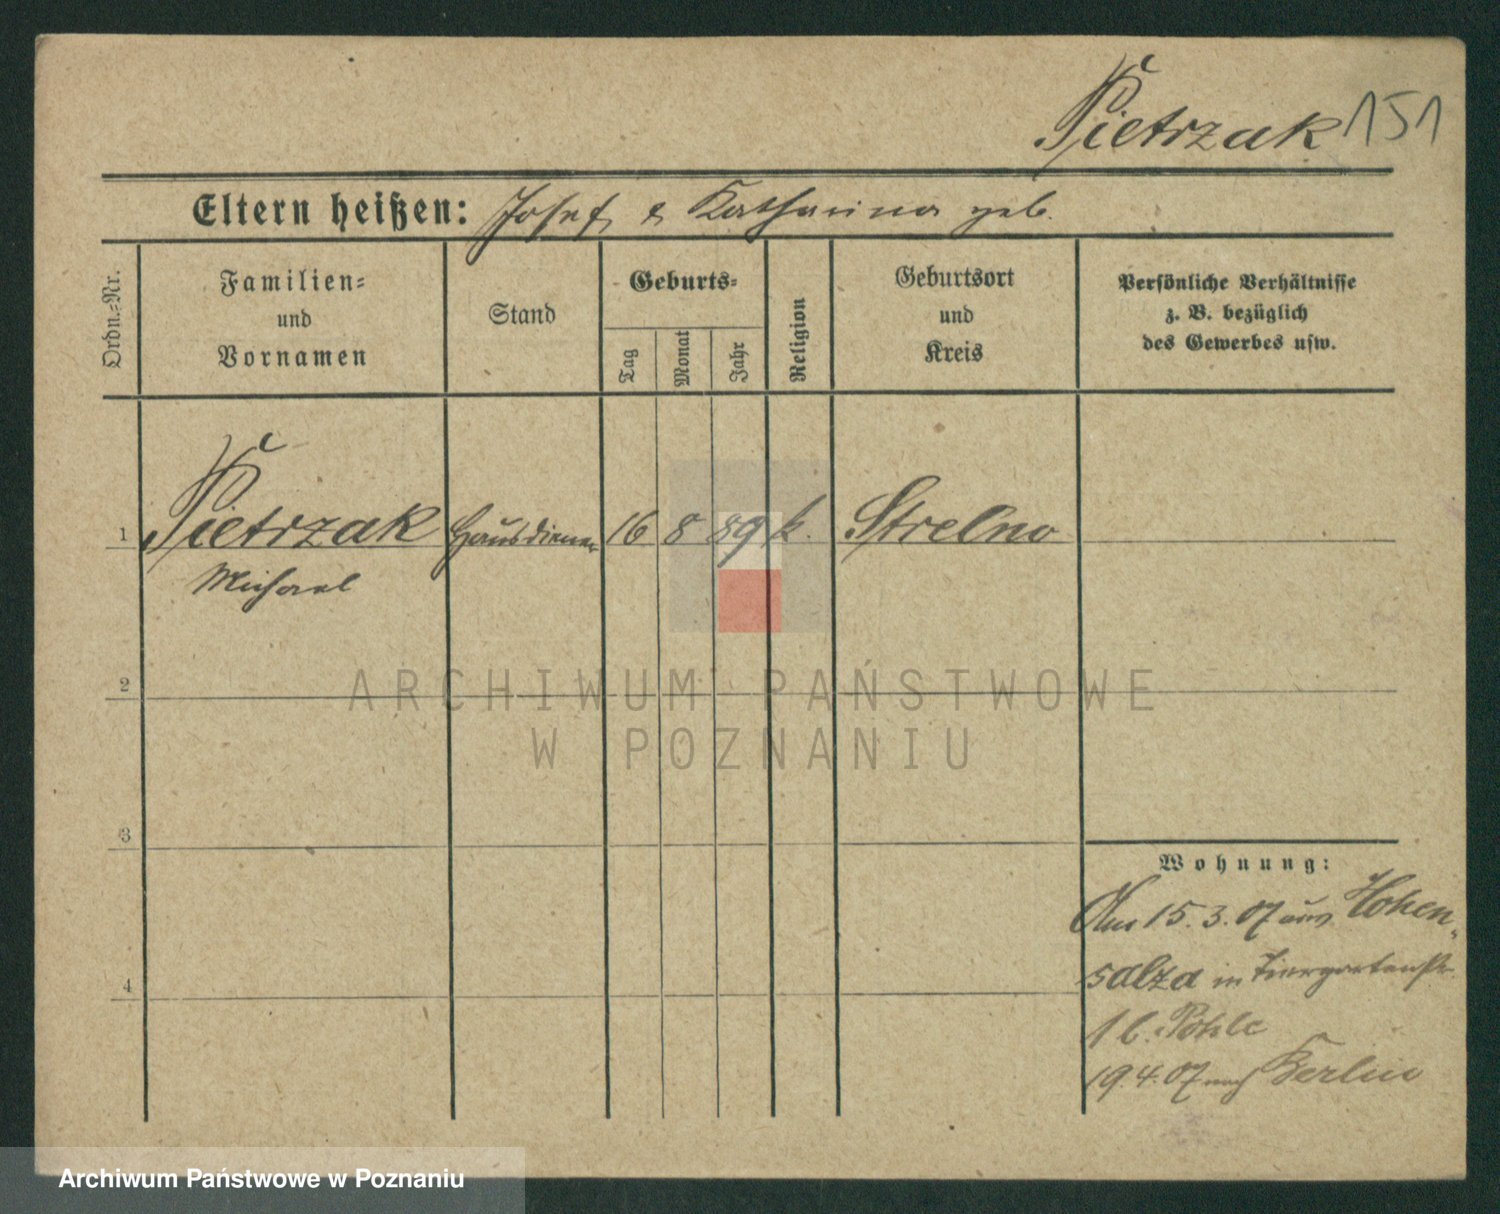 Pietrzak 151
Eltern heißen: Josef & Katharina geb.
Ordn.=Nr.
Familien=
und
Vornamen
Stand
Geburts=
Tag
Monat
Jahr
Religion
Geburtsort
und
Kreis
Persönliche Verhältnisse
z. B. bezüglich
des Gewerbes usw.
1 Pietrzak Hausdiener 16 8 89 k. Strelno
Michael
2
ARCHIWUM PAŃSTWOWE
W POZNANIU
3
Wohnung:
Am 15.3.07 aus Hohen-
4
salza in Tiergartenstr.
1 b. Pohle
19.4.07 nach Berlin
Archiwum Państwowe w Poznaniu